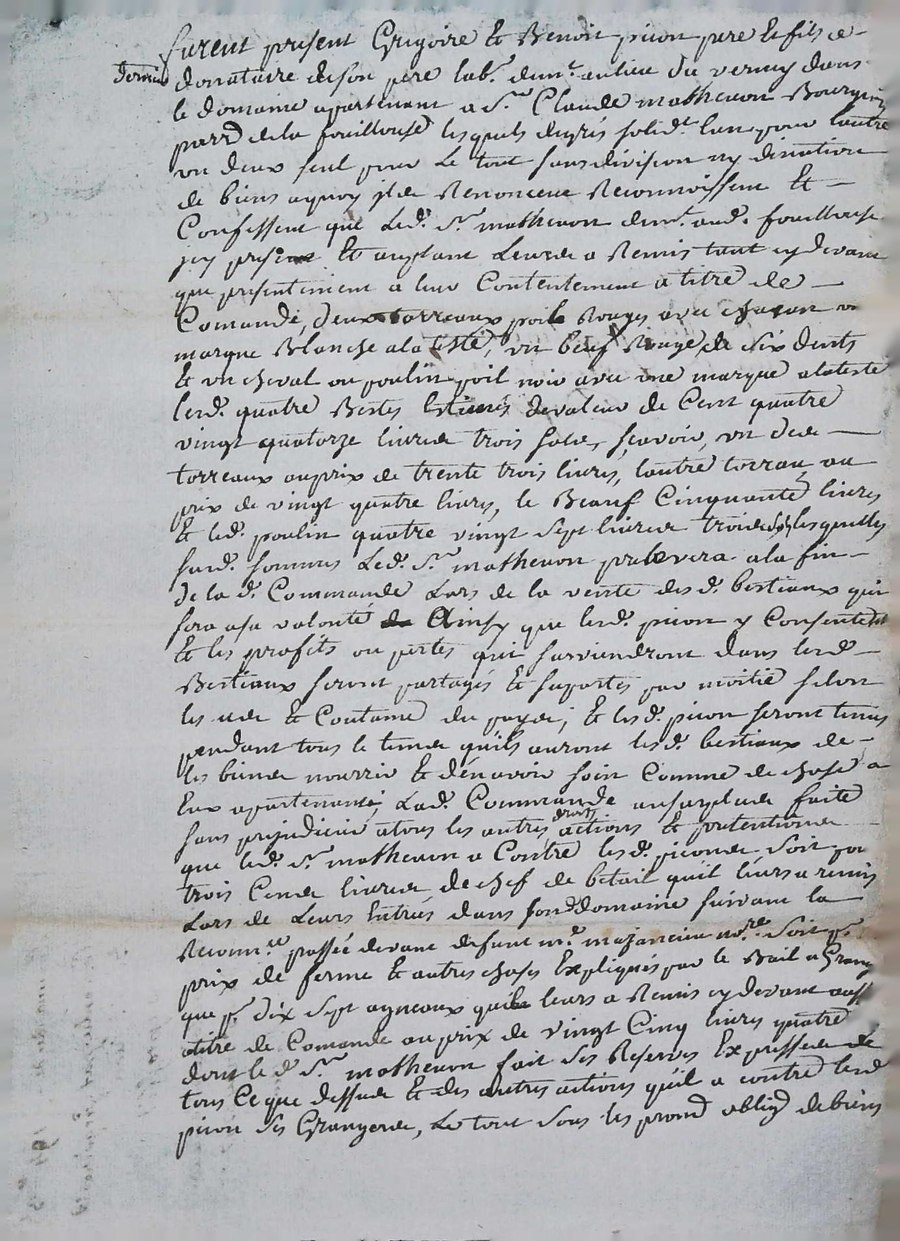 furent present Grigoire et Benoit picon pere et fils ce
dernier donnataire de son pere lab.r dem.t au lieu du verney dans
le domaine apartenant a S.r Claude matheuon Bourgeois
parr.e de la fouillouse lesquels degrés solid.t lun pour lautre
un deux seul pour le tout sans division ny
de biens a quoy ils Renoncent Reconnoissent et
Confessent que led. S.r matheuon dem.t aud. fouillouse
jcy present et aceptant leurs a Remis tant cy devant
que presentement a leur Contentement a titre de
Comande, deux torreaux poile Rouges avec chacun un
marque Blanche a la teste, un beuf Rouge, de six dents
et un cheval ou poulin poil noir avec une marque a la teste
lesd. quatre Bestes Estimés de valeur de Cent quatre
vingt quatorze livres trois sols, scavoir, un des
torreaux au prix de trente trois livres, lautre torrau au
prix de vingt quatre livres, le Bœuf Cinquante livres
et led. poulin quatre vingt sept livres trois sols, lesquelles
susd. sommes led. S.r matheuon prelevera a la fin
de la d. Commande Lors de la vente desd. bestiaux qui
sera a sa volonté Ainsy que lesd. picon y Consentent
et les profits ou pertes qui surviendront dans lesd.
Bestiaux seront partagés et suportés par moitié selon
les us et Coutume du pays; et lesd. picon seront tenus
pendant tous le tems quils auront lesd. bestiaux de
les bien nourrir et den avoir soin Comme de chose a
Eux apartenante, Lad. Commande au surplus faite
sans prejudicier a tous les autres droits actions et pretentions
que led. S.r matheuon a Contre lesd. picons soit pour
trois Cens livres de chef de betail quil leurs a remis
Lors de Leurs Entrés dans sond. domaine suivant la
Reconn.ce passée devant defunt m.e no.re soit p.r
prix de ferme et autres choses Expliqués par le Bail a Grange
que p.r dix sept agneaux quil leurs a Remis cy devant aussy
a titre de Comande au prix de vingt Cinq livres quatre
dont le d. S.r matheuon fait ses Reserves Expresses de
tous Ce que dessus et des autres actions quil a contre lesd.
picon ses Grangers, Le tout sous les prom.s oblig.s de biens